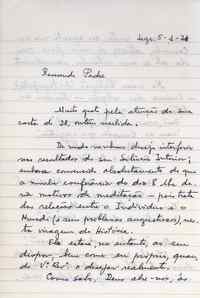 5-1-
Reverendo Padre
Muito grato pela atenção de sua
carta de 28, ontem recebida.
De modo nenhum desejo interferir
nos resultados do seu Silêncio Interior;
embora convencido absolutamente de que
a minha conferência do dia 8 lhe da-
ria motivos de meditação — pois trata
das relações entre o Indivíduo e o
Mundo (e seus problemas angustiosos), nes-
ta viragem da História.
Ela estará, no entanto, ao seu
dispor, bem como eu próprio, quan-
do V. Rev. o desejar realmente.
Como sabe, Deus